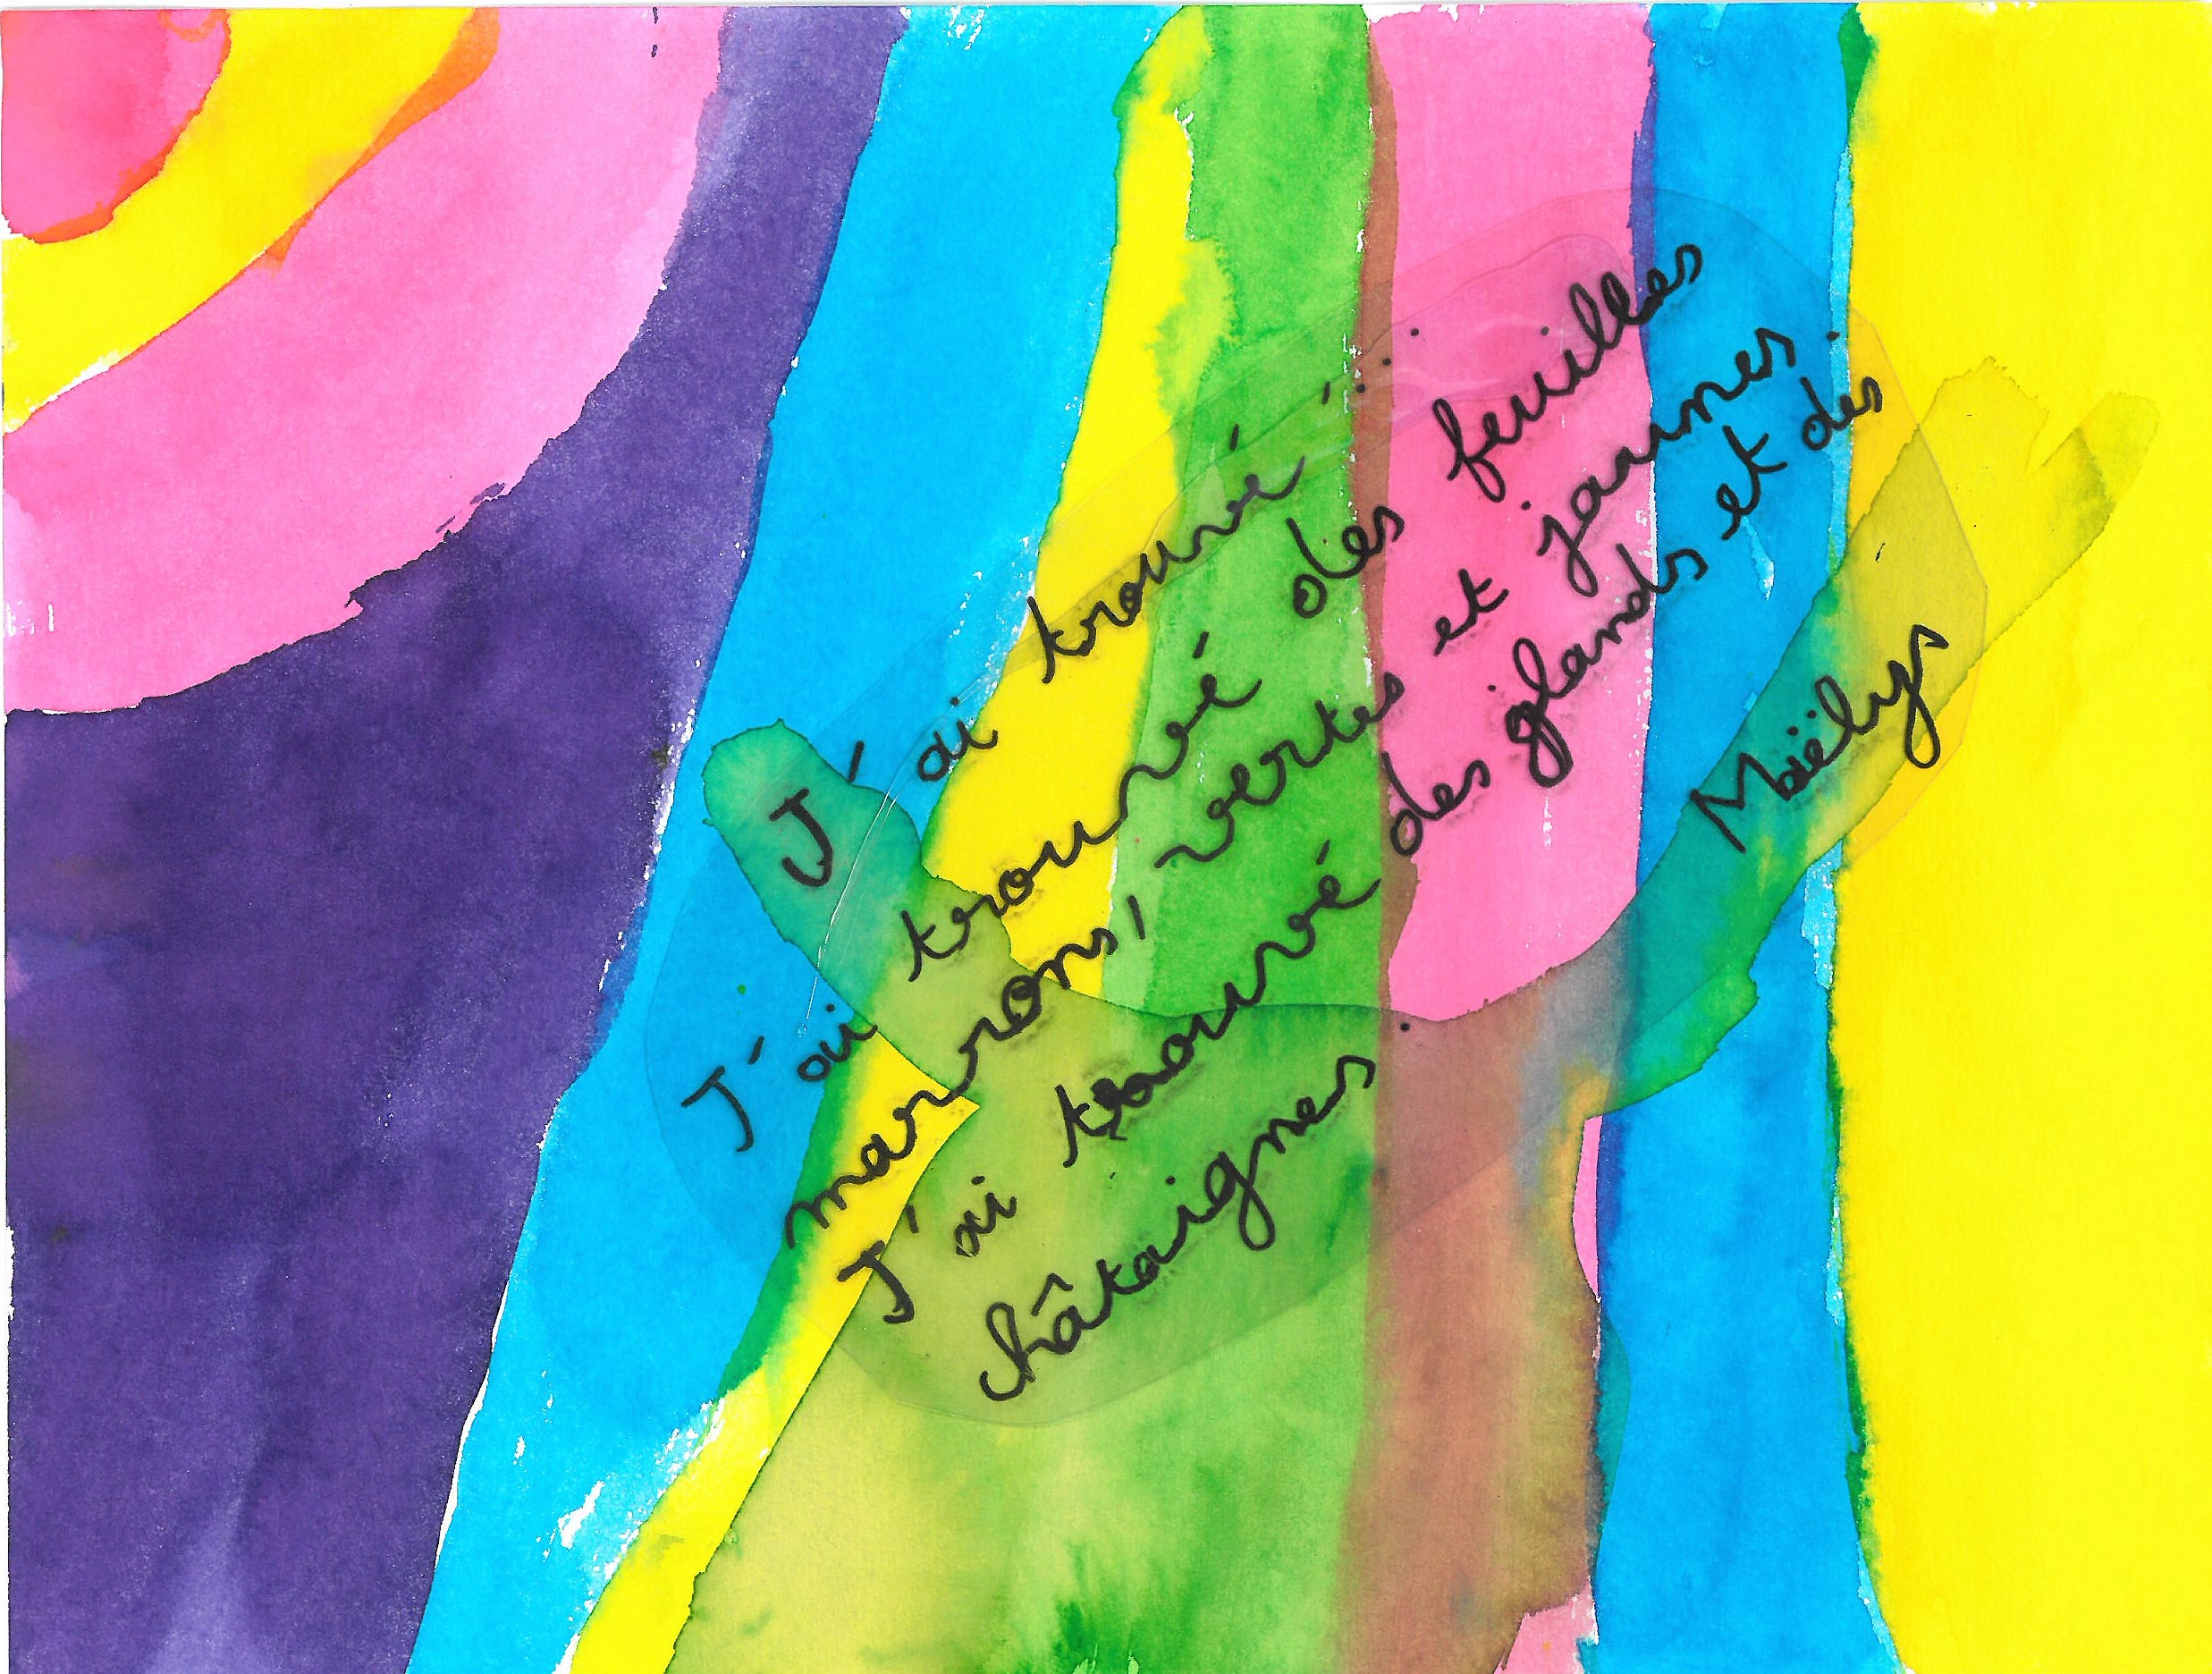 J'ai trouvé . . . .
J'ai trouvé des feuilles
marrons, vertes et jaunes.
J'ai trouvé des glands et des
châtaignes.
Maëlys